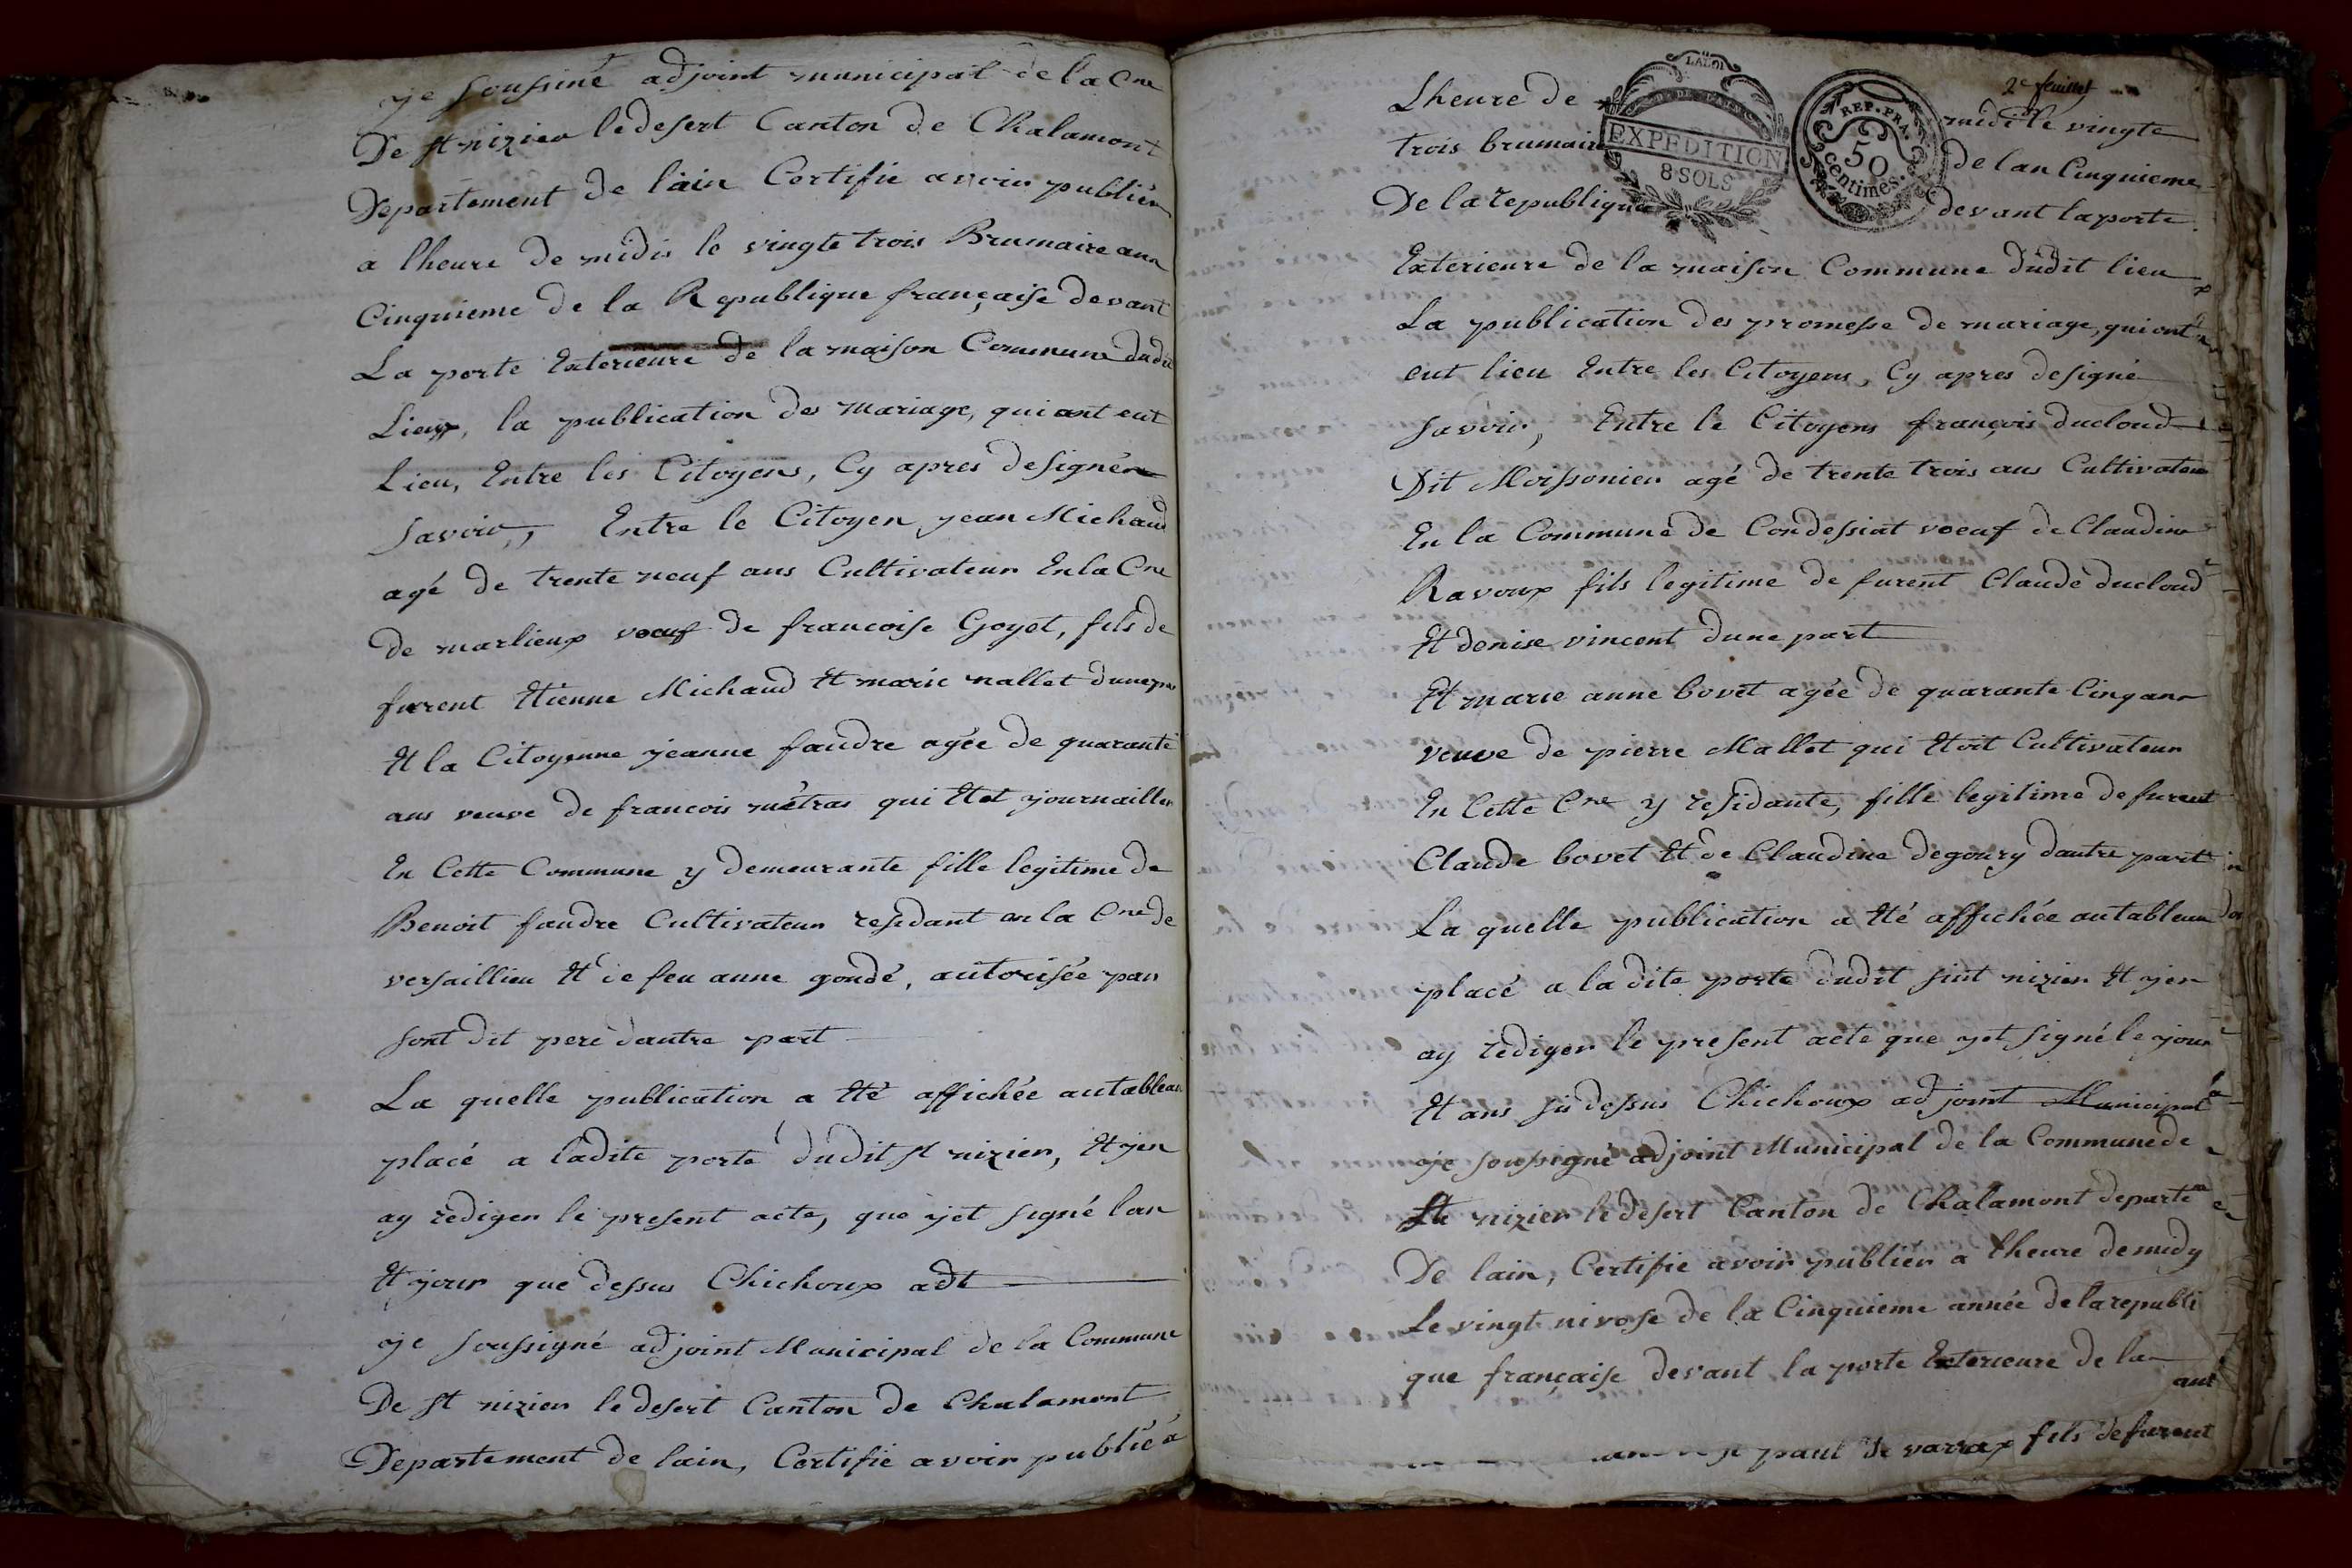 je soussiné adjoint municipal de la Cne
De st nizier ledesert Canton de Chalamont
Departement de lain Certifie avoir publier
a lheure de midis le vingte trois Brumaire ann
Cinquieme de la Republique françaisse devant
La porte Exterieure de la maison Commune dudit
Lieux, la publication des mariage, qui ont eut
Lieu, Entre les Citoyens, Cy apres designér
savoir, Entre le Citoyen jean Michaud
agé de trente neuf ans Cultivateur En la Cne
de marlieux voeuf de francoise Goyet, fils de
furent Etienne Michaud Et marie nallet dune par
Et la Citoyenne jeanne faudre agée de quarante
ans veuve de francois métras qui Etet journaillier
En Cette Commune y demeurante fille legitime de
Benoit faudre Cultivateur residant en la Cne de
versaillieu Et de feu anne gondé, autorisée par
sont dit pere dautre part
La quelle publication a Eté affichée autableau
placé a ladite porte dudit st nizier, Et jen
ay rediger le present acte, que jet signé lan
Et jour que dessus Chichoux adt
je soussigné adjoint Municipal de la Commune
De st nizier ledesert Canton de Chalamont
Departement de lain, Certifie avoir publié a
2e feuillet
LA LOI
EXPEDITION
8 SOLS
REP. FRA.
50
centimes.
Lheure de midi le vingte
trois brumaire de lan Cinquieme
De la republique devant la porte
Exterieure de la maison Commune dudit lieu
La publication des promesse de mariage, qui ont
eut lieu Entre les Citoyens, Cy apres designé
savoir, Entre le Citoyens françois ducloud
Dit Moissonier agé de trente trois ans Cultivateur
En la Commune de Condessiat voeuf de Claudine
Ravoux fils legitime de furent Claude ducloud
Et denise vincent dune part
Et marie anne bovet agée de quarante Cinq ans
veuve de pierre Mallet qui Etoit Cultivateur
En Cette Cne y residante, fille legitime de furent
Claude bovet Et de Claudine degoury dautre part
La quelle publication a Eté affichée autableau
placé a la dite porte dudit sint nizier Et jen
ay rediger le present acte que jet signé le jour
Et ans sus dessus Chichoux adjoint Municipal
je soussigné adjoint Municipal de la Commune de
St nizier le desert Canton de Chalamont departem
De lain, Certifie avoir publier a lheure de midy
Le vingt nivose de la Cinquieme année de la republi
que française devant la porte Exterieure de la
paul de varrax fils de furent